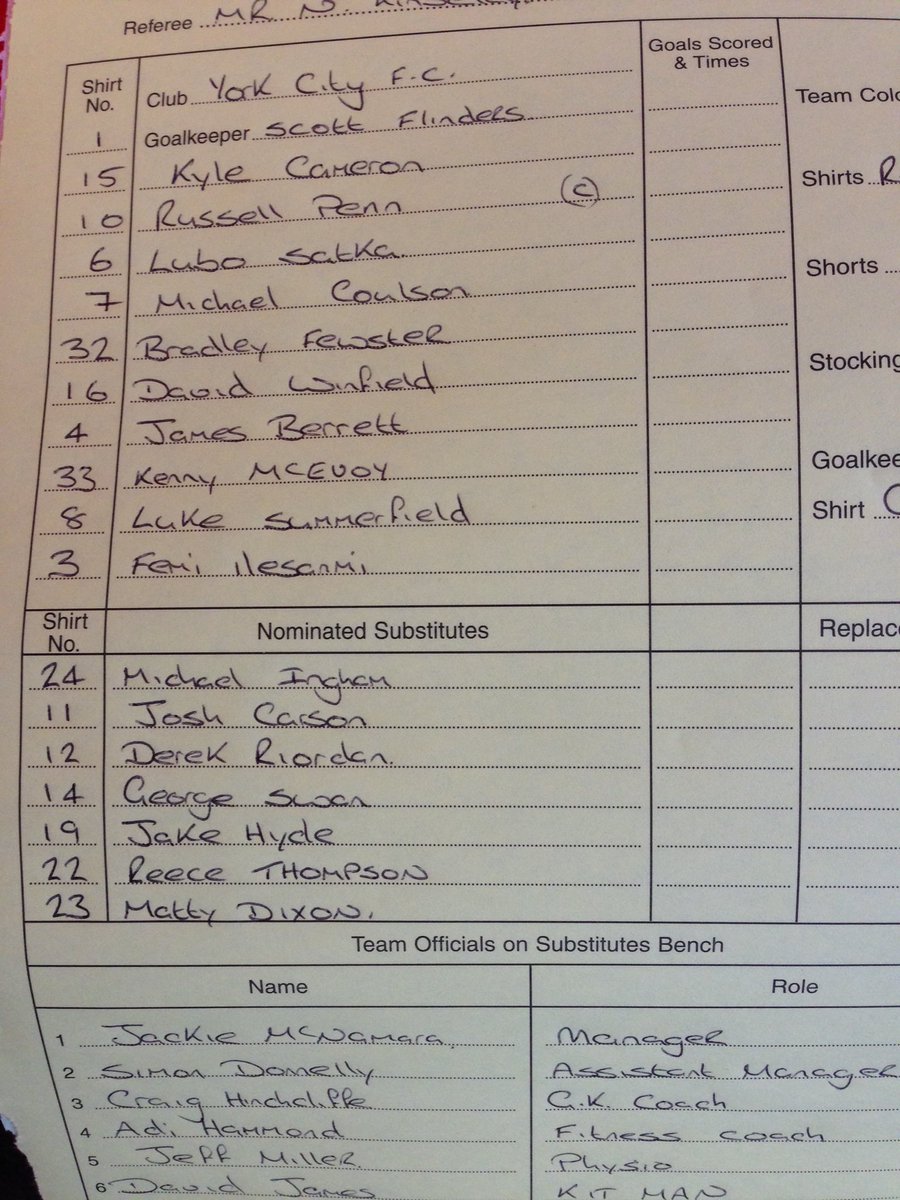 Referee MR N.
Shirt No. Club York City F.C. Goals Scored & Times
1 Goalkeeper Scott Flinders Team Colo
15 Kyle Cameron
10 Russell Penn (C) Shirts R
6 Lubo Satka
7 Michael Coulson Shorts
32 Bradley Fewster
16 David Winfield Stocking
4 James Berrett
33 Kenny MCEVOY Goalkee
8 Luke Summerfield Shirt
3 Femi Ilesanmi
Shirt No. Nominated Substitutes Replace
24 Michael Ingham
11 Josh Carson
12 Derek Riordan.
14 George Swan
19 Jake Hyde
22 Reece THOMPSON
23 Matty DIXON.
Team Officials on Substitutes Bench
Name Role
1 Jackie McNamara. Manager
2 Simon Donnelly Assistant Manager
3 Craig Hinchcliffe G.K. Coach
4 Adi Hammond Fitness coach
5 Jeff Miller. Physio
6 David James KIT MAN